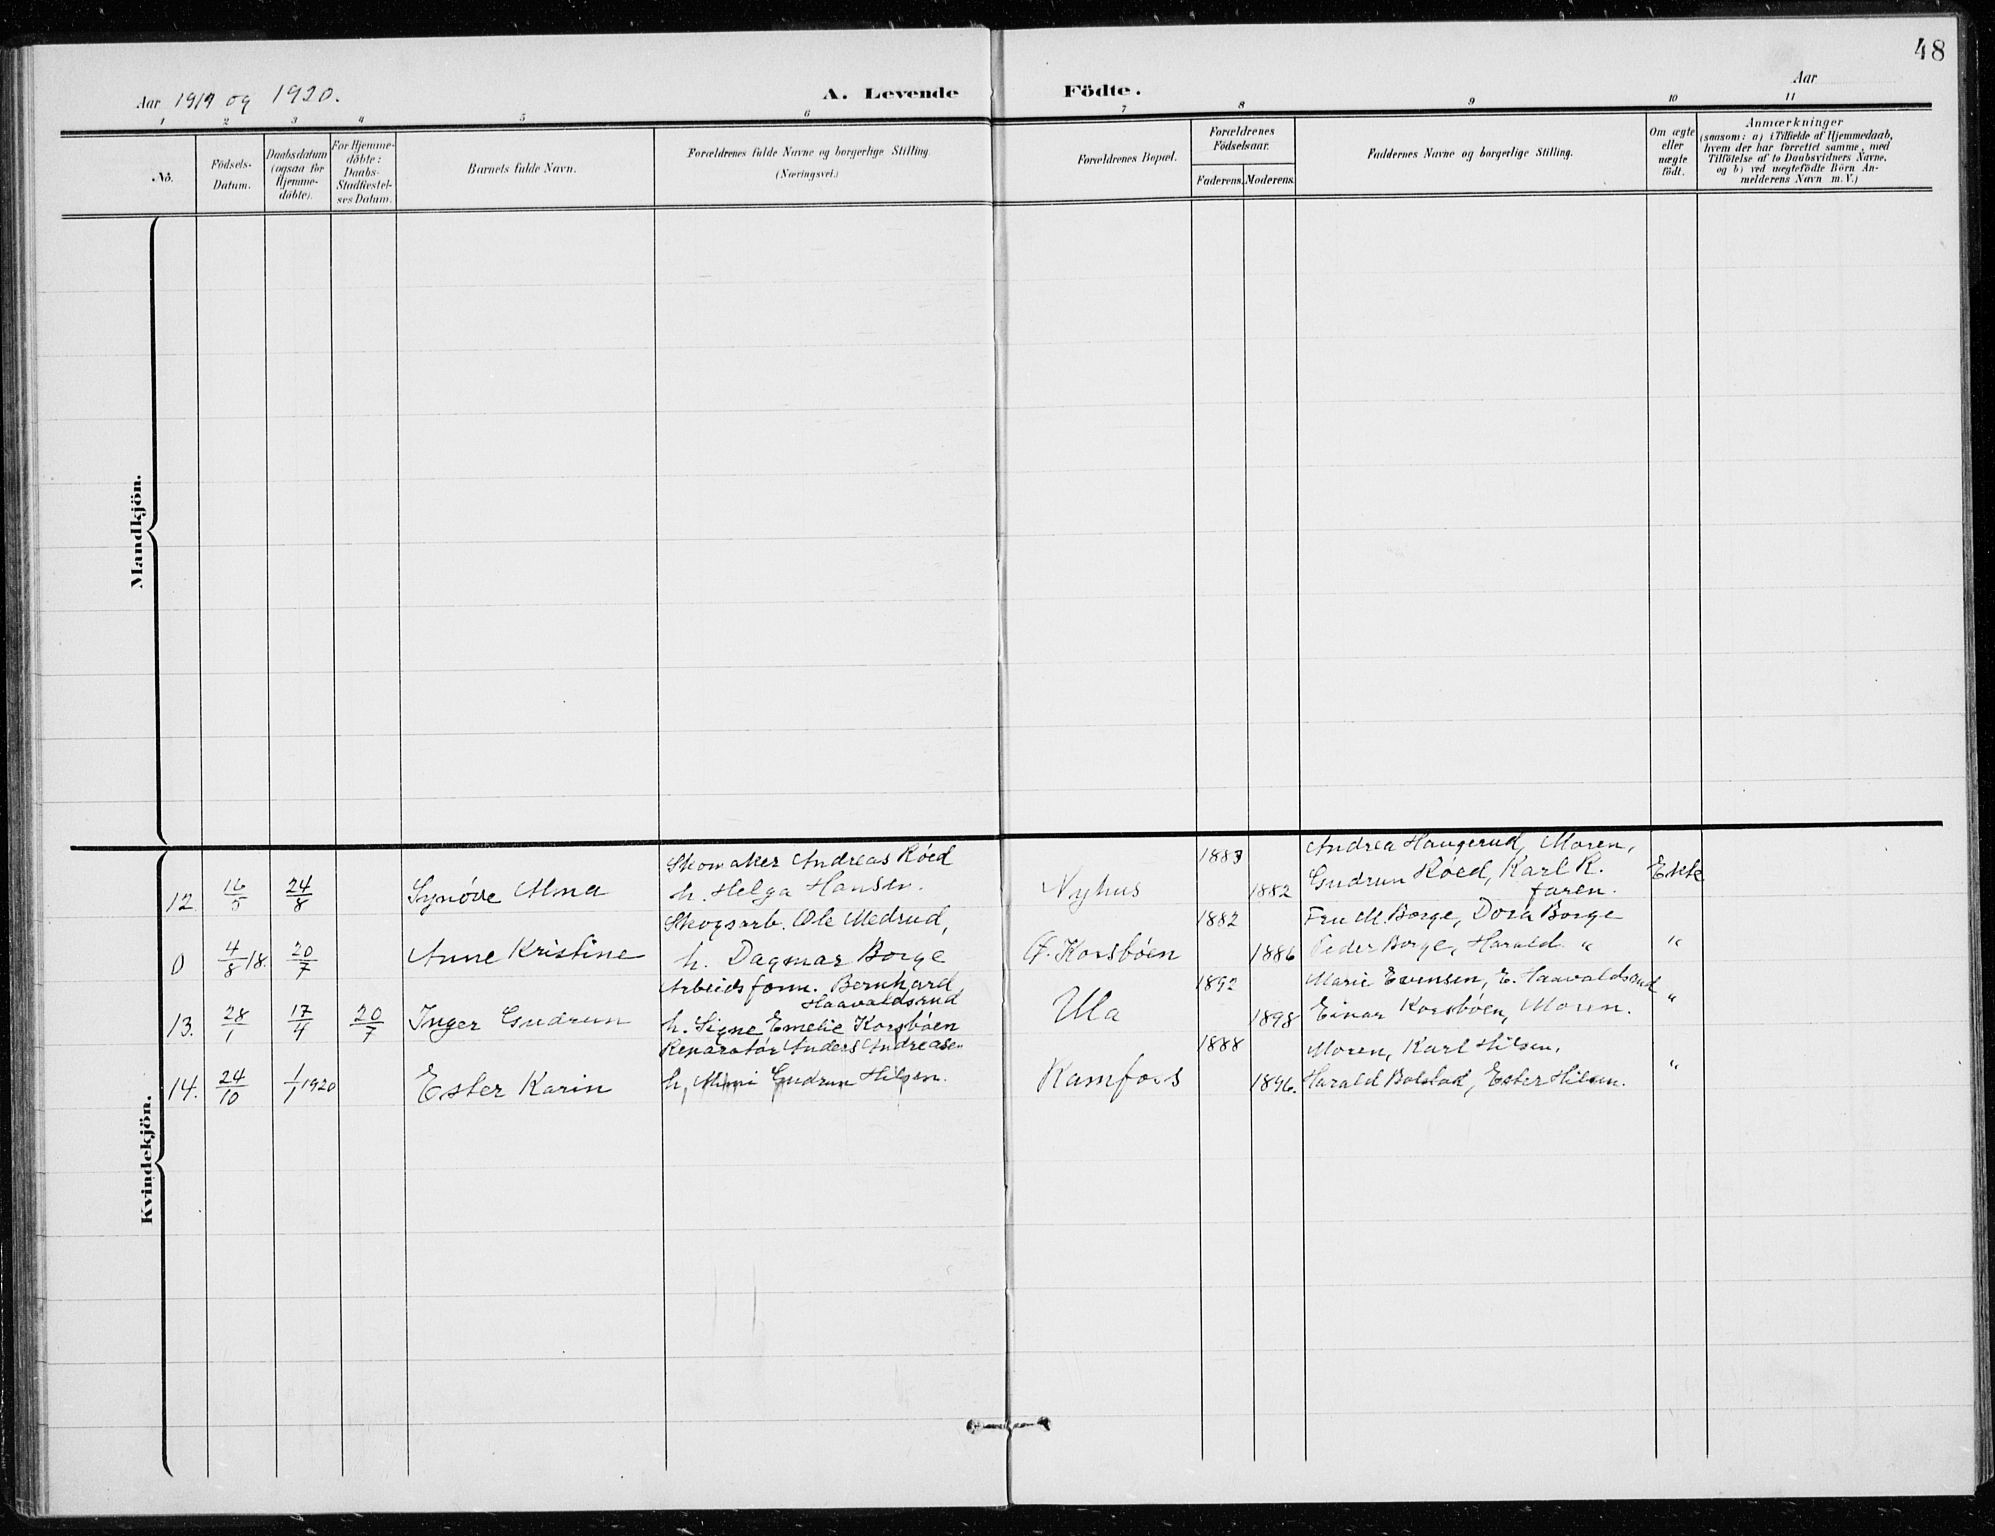 48
Aar 1919 og 1920.
A. Levende Födte.
Aar
1 2 3 4 5 6 7 8 9 10 11
No.
Födsels-
Datum.
Daabsdatum
(ogsaa for
Hjemme-
döbte).
For Hjemme-
döbte:
Daabs-
Stadfæstel-
ses Datum.
Barnets fulde Navn.
Forældrenes fulde Navne og borgerlige Stilling.
(Næringsvei.)
Forældrenes Bopæl.
Forældrenes
Födselsaar.
Faderens. Moderens.
Faddernes Navne og borgerlige Stilling.
Om ægte
eller
uægte
født.
Anmærkninger
(saasom: a) i Tilfælde af Hjemmedaab,
hvem der har forrettet samme, med
Tilföielse af to Daabsvidners Navne,
og b) ved uægtefödte Börn An-
melderens Navn m. V.)
Mandkjön.
Kvindekjön.
Skomaker Andreas Röed 1883 Andrea Haugerud, Moren,
12. 16/5 24/8 Synöve Alma h. Helga Hansen. Nyhus 1882 Gudrun Röed, Karl R. Ekte
faren.
Skogsarb. Ole Medrud, 1882 Fru M. Borge, Dora Borge
0 4/8 18. 20/7 Anne Kristine h. Dagmar Borge F. Korsböen 1886 Peder Borge, Harald " "
Arbeidsform. Bernhard 1892 Marie Evensen, E. Haavaldsrud
Haavaldsrud
13. 28/1 17/4 20/7 Inger Gudrun h. Signe Emelie Korsböen Ula 1898 Einar Korsböen, Moren. "
Reparatör Anders Andreasen 1888 Moren, Karl Hilsen,
14. 24/10 1/1 1920 Ester Karin h. Mimi Gudrun Hilsen. Kamfoss 1896. Harald Bolstad, Ester Hilsen. "